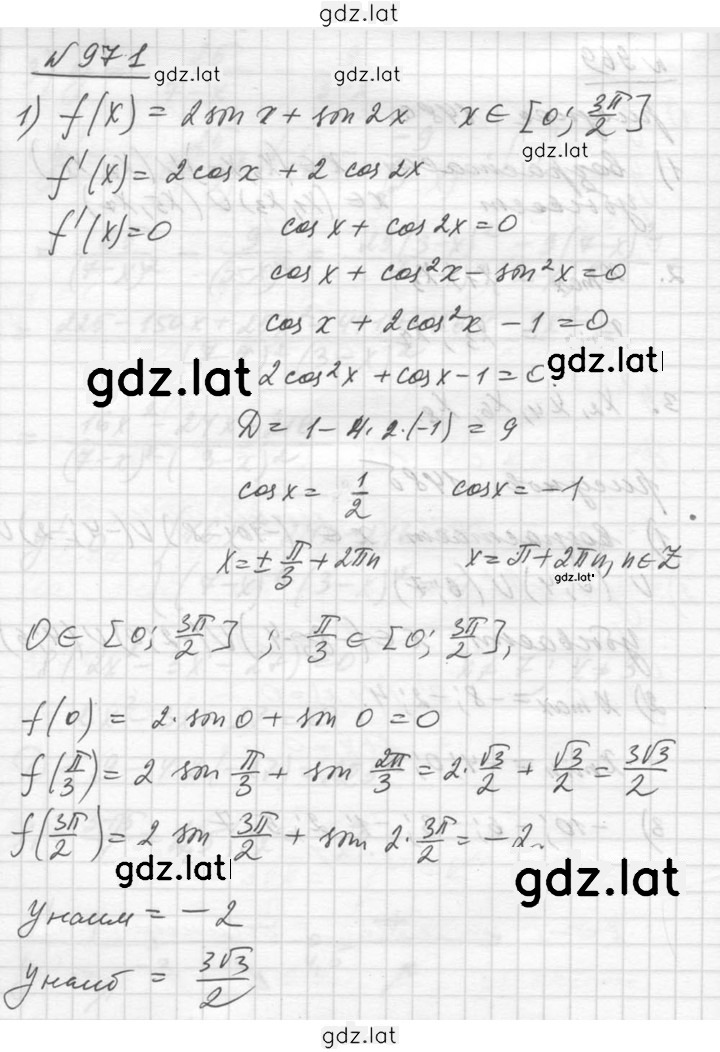 gdz.lat
№971
gdz.lat
1) f(x) = 2 sin x + sin 2x   x ∈ [0; 3π/2]
gdz.lat
f'(x) = 2cos x + 2 cos 2x
f'(x) = 0   cos x + cos 2x = 0
cos x + cos²x − sin²x = 0
cos x + 2cos²x − 1 = 0
gdz.lat
gdz.lat
2cos²x + cos x − 1 = 0
D = 1 − 4·2·(−1) = 9
cos x = 1/2   cos x = −1
x = ± π/3 + 2πn   x = π + 2πn, n ∈ Z
gdz.lat
0 ∈ [0; 3π/2] ; π/3 ∈ [0; 3π/2],
f(0) = 2·sin 0 + sin 0 = 0
f(π/3) = 2 sin π/3 + sin 2π/3 = 2·√3/2 + √3/2 = 3√3/2
f(3π/2) = 2 sin 3π/2 + sin 2·3π/2 = −2.
gdz.lat
gdz.lat
y наим = −2
y наиб = 3√3/2
gdz.lat